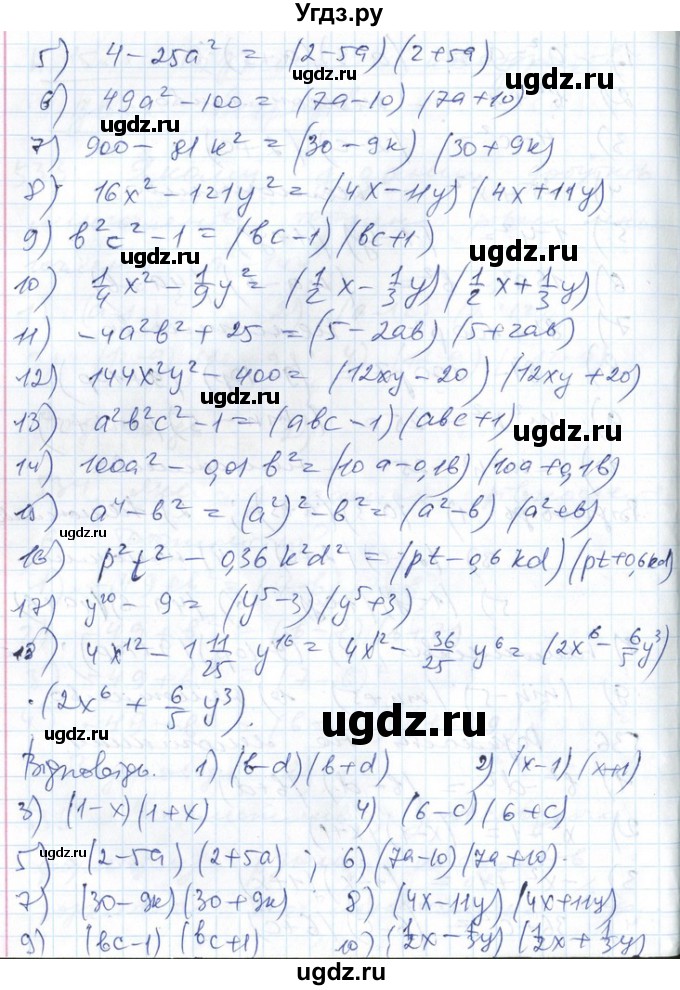 Угдз.ру
5) 4 − 25a² = (2−5a)(2+5a)
ugdz.ru
ugdz.ru
6) 49a² − 100 = (7a−10)(7a+10)
ugdz.ru
7) 900 − 81k² = (30−9k)(30+9k)
8) 16x² − 121y² = (4x−11y)(4x+11y)
9) b²c² − 1 = (bc−1)(bc+1)
ugdz.ru
10) 1/4 x² − 1/9 y² = (1/2 x − 1/3 y)(1/2 x + 1/3 y)
ugdz.ru
11) −4a²b² + 25 = (5−2ab)(5+2ab)
12) 144x²y² − 400 = (12xy−20)(12xy+20)
ugdz.ru
13) a²b²c² − 1 = (abc−1)(abc+1)
ugdz.ru
14) 100a² − 0,01b² = (10a−0,1b)(10a+0,1b)
15) a⁴ − b² = (a²)² − b² = (a²−b)(a²+b)
ugdz.ru
16) p²t² − 0,36k²d² = (pt−0,6kd)(pt+0,6kd)
17) y¹⁰ − 9 = (y⁵−3)(y⁵+3)
18) 4x¹² − 1 11/25 y¹⁶ = 4x¹² − 36/25 y⁶ = (2x⁶ − 6/5 y³)
·(2x⁶ + 6/5 y³).
ugdz.ru
ugdz.ru
Відповідь. 1) (b−d)(b+d) 2) (x−1)(x+1)
3) (1−x)(1+x) 4) (6−c)(6+c)
ugdz.ru
5) (2−5a)(2+5a); 6) (7a−10)(7a+10).
7) (30−9k)(30+9k) 8) (4x−11y)(4x+11y)
ugdz.ru
9) (bc−1)(bc+1) 10) (1/2x − 1/3y)(1/2x + 1/3y)
ugdz.ru